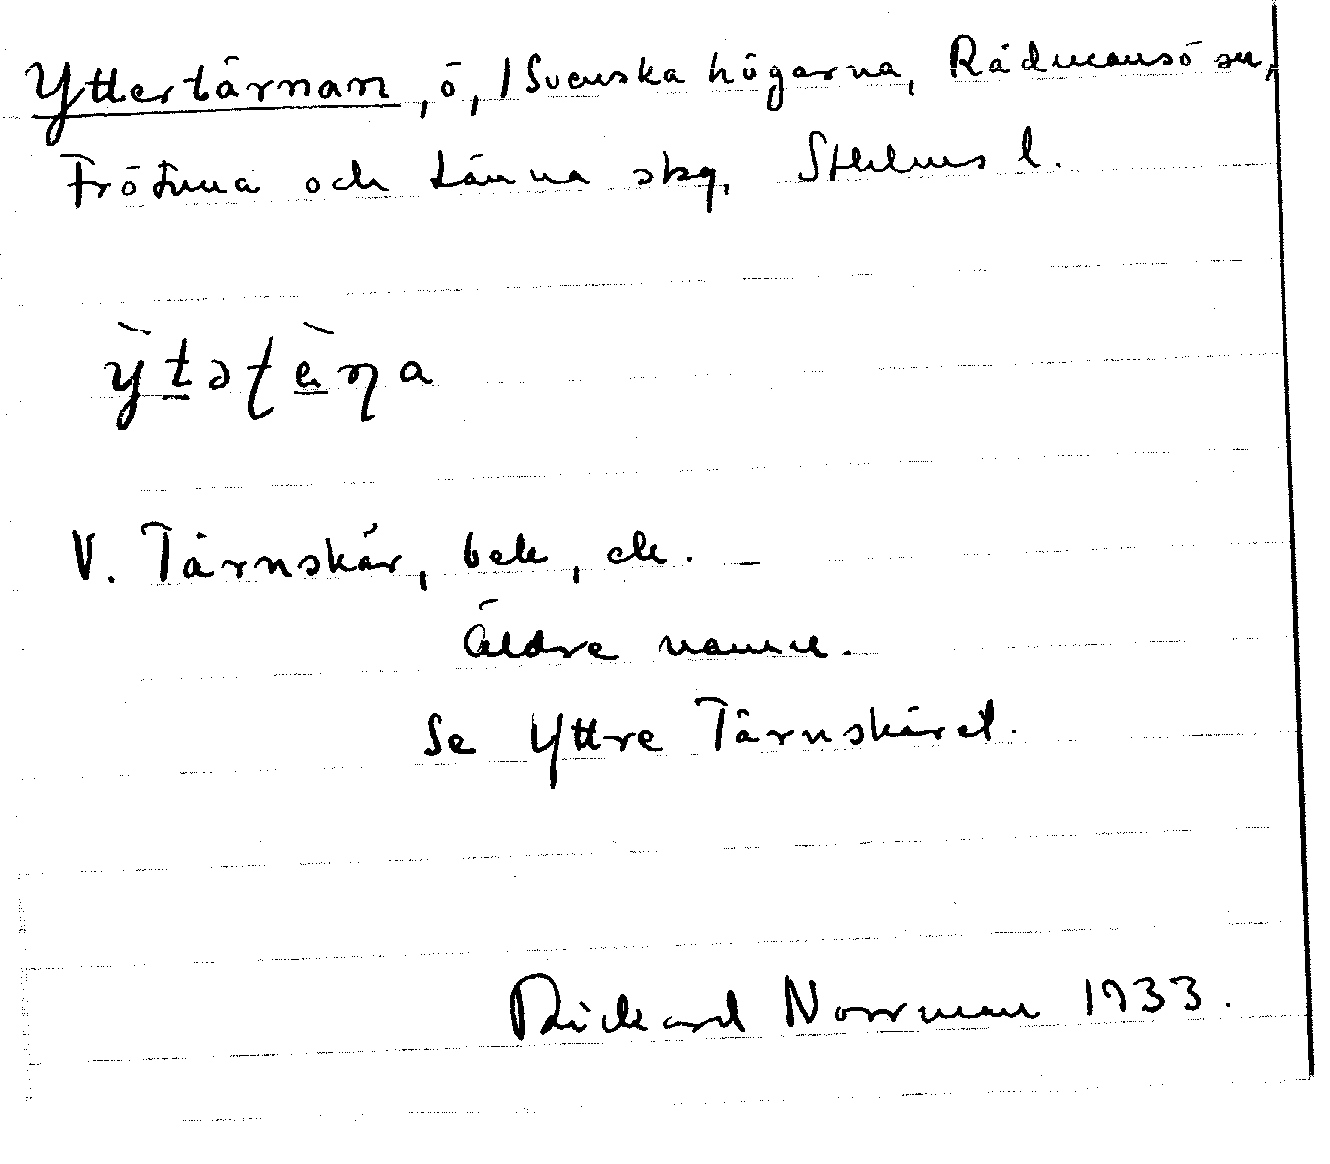 Yttertärnan, ö, i Svenska högarna, Rådmansö sn,
Frötuna och Länna skg, Sthlms l.
ỳtətèɳa
V. Tärnskär, bek, ek. —
Äldre namn.
Se Yttre Tärnskäret.
Rickard Norrman 1933.